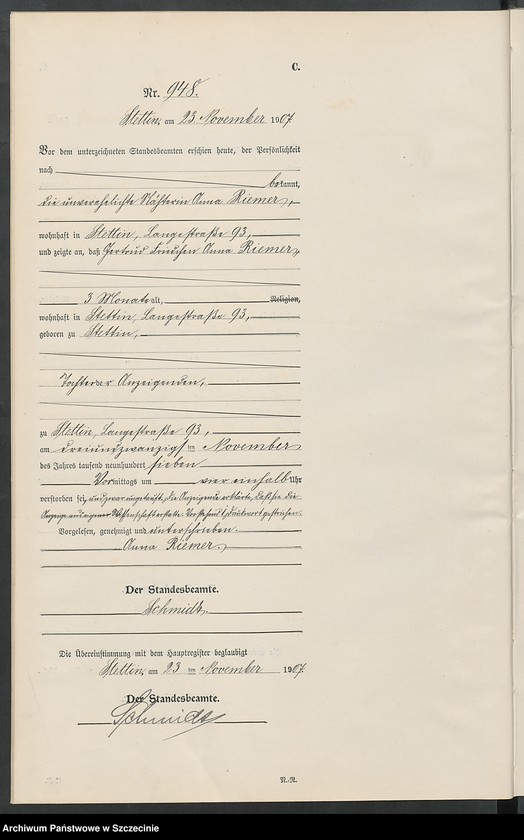 C.
Nr. 948.
Stettin, am 23. November 1907.
Vor dem unterzeichneten Standesbeamten erschien heute, der Persönlichkeit
nach
bekannt,
die unverehelichte Näherin Anna Riemer,
wohnhaft in Stettin, Langestraße 93,
und zeigte an, daß Gertrud Frieda Anna Riemer,
3 Monate alt, Religion,
wohnhaft in Stettin, Langestraße 93,
geboren zu Stettin,
Tochter der Anzeigenden,
zu Stettin, Langestraße 93,
am dreiundzwanzigsten November
des Jahres tausend neunhundert sieben
Vormittags um vier einhalb Uhr
verstorben sei, und zwar ungetauft, die Anzeigende erklärte, daß sie die
Anzeige aus eigener Wissenschaft erstatte. Vorstehend 1 Druckwort gestrichen.
Vorgelesen, genehmigt und unterschrieben.
Anna Riemer.
Der Standesbeamte.
Schmidt.
Die Übereinstimmung mit dem Hauptregister beglaubigt
Stettin, am 23 ten November 1907.
Der Standesbeamte.
Schmidt
N.-R.
Archiwum Państwowe w Szczecinie